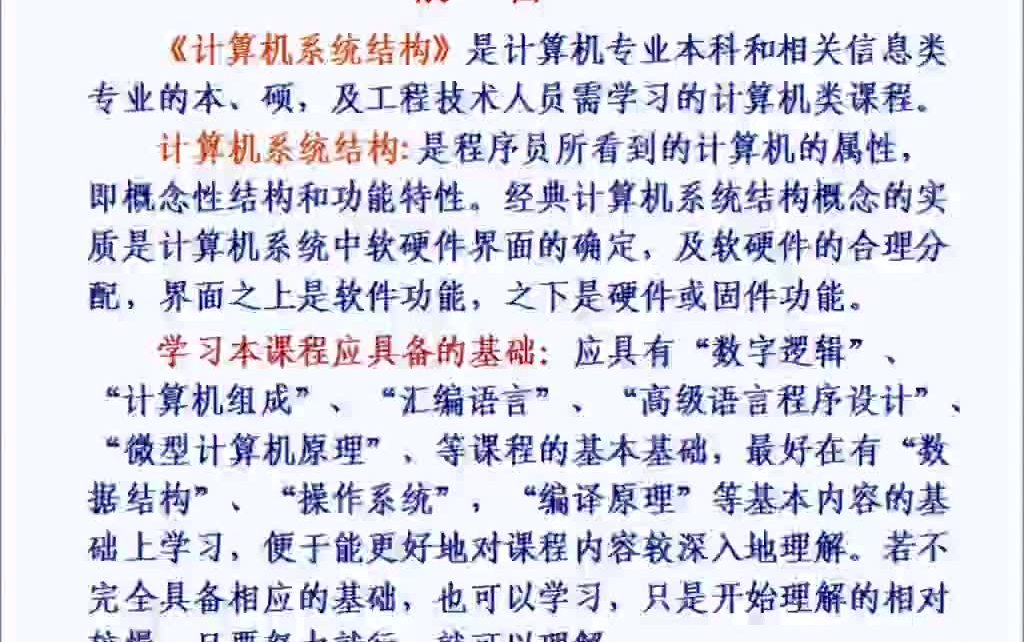 《计算机系统结构》是计算机专业本科和相关信息类
专业的本、硕，及工程技术人员需学习的计算机类课程。
计算机系统结构：是程序员所看到的计算机的属性，
即概念性结构和功能特性。经典计算机系统结构概念的实
质是计算机系统中软硬件界面的确定，及软硬件的合理分
配，界面之上是软件功能，之下是硬件或固件功能。
学习本课程应具备的基础：应具有“数字逻辑”、
“计算机组成”、“汇编语言”、“高级语言程序设计”、
“微型计算机原理”、等课程的基本基础，最好在有“数
据结构”、“操作系统”，“编译原理”等基本内容的基
础上学习，便于能更好地对课程内容较深入地理解。若不
完全具备相应的基础，也可以学习，只是开始理解的相对